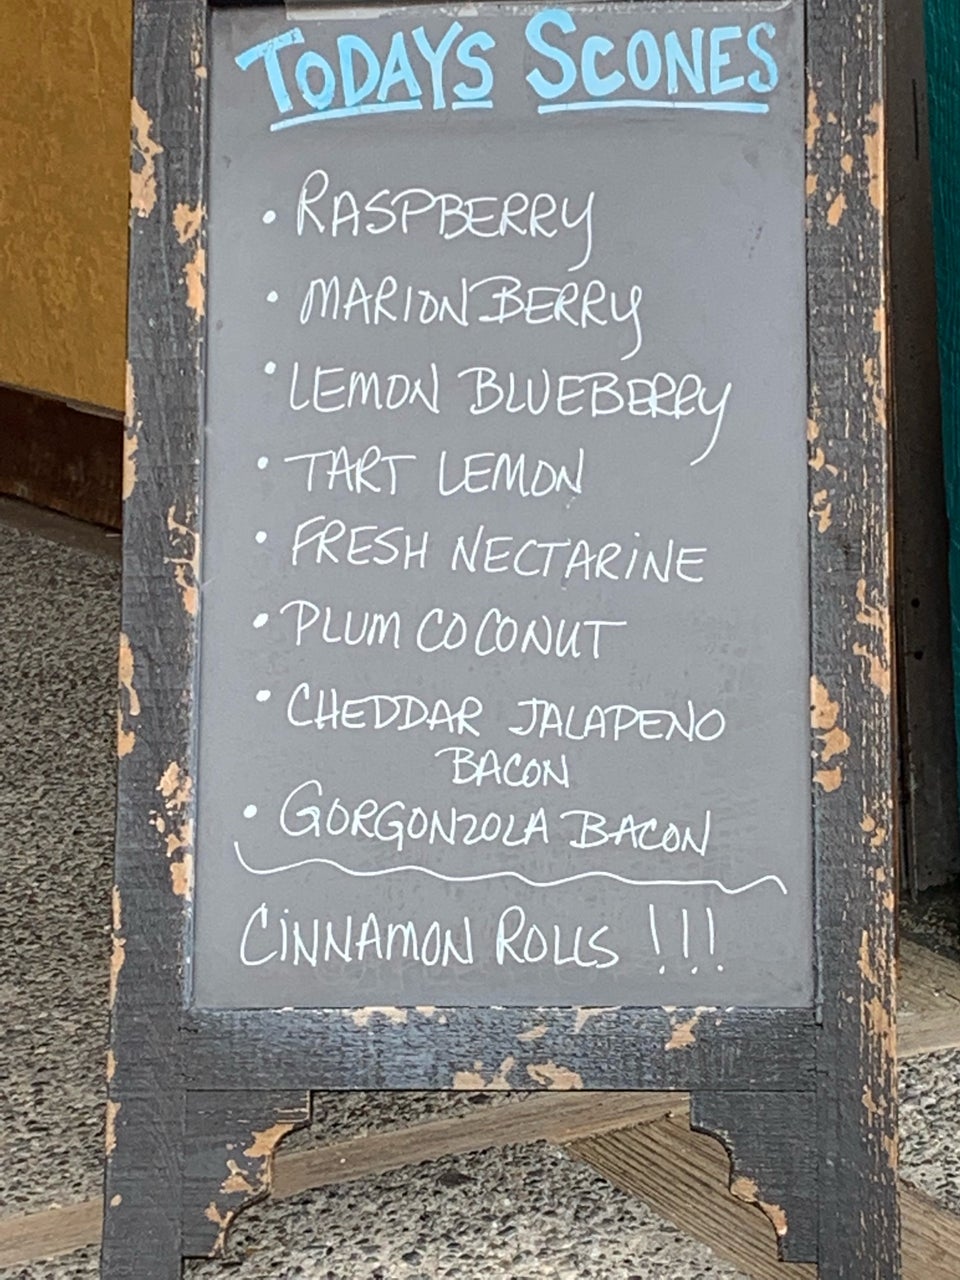 TODAYS SCONES
• RASPBERRY
• MARIONBERRY
• LEMON BLUEBERRY
• TART LEMON
• FRESH NECTARINE
• PLUM COCONUT
• CHEDDAR JALAPENO
BACON
• GORGONZOLA BACON
CINNAMON ROLLS !!!